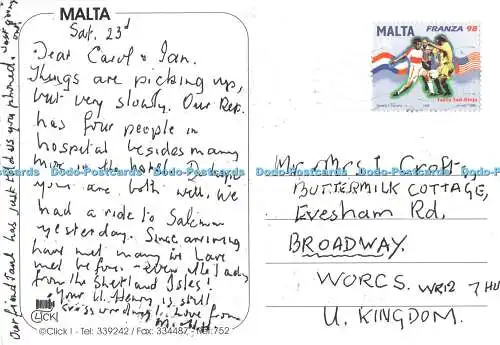 MALTA
Sat. 23d
Dear Carol & Ian.
Things are picking up,
but very slowly. Our Rep.
has four people in
hospital besides many
more in the hotel. Do hope
you are both well. We
had a ride to
yesterday. Since arriving
have met many we have
met before. - even the Lady
from the Shetland Isles!
Your U. Henry is still
crosswording! Love from
©Click! - Tel: 339242 / Fax: 334487 - Ref:752
Our friend has just told us you phoned.
MALTA FRANZA 98
Mr. & Mrs I. Croft
BUTTERMILK COTTAGE,
Evesham Rd.
BROADWAY.
WORCS. WR12 7HU
U. KINGDOM.
Dodo-Postcards Dodo-Postcards Dodo-Postcards Dodo-Postcards Dodo-Postcards